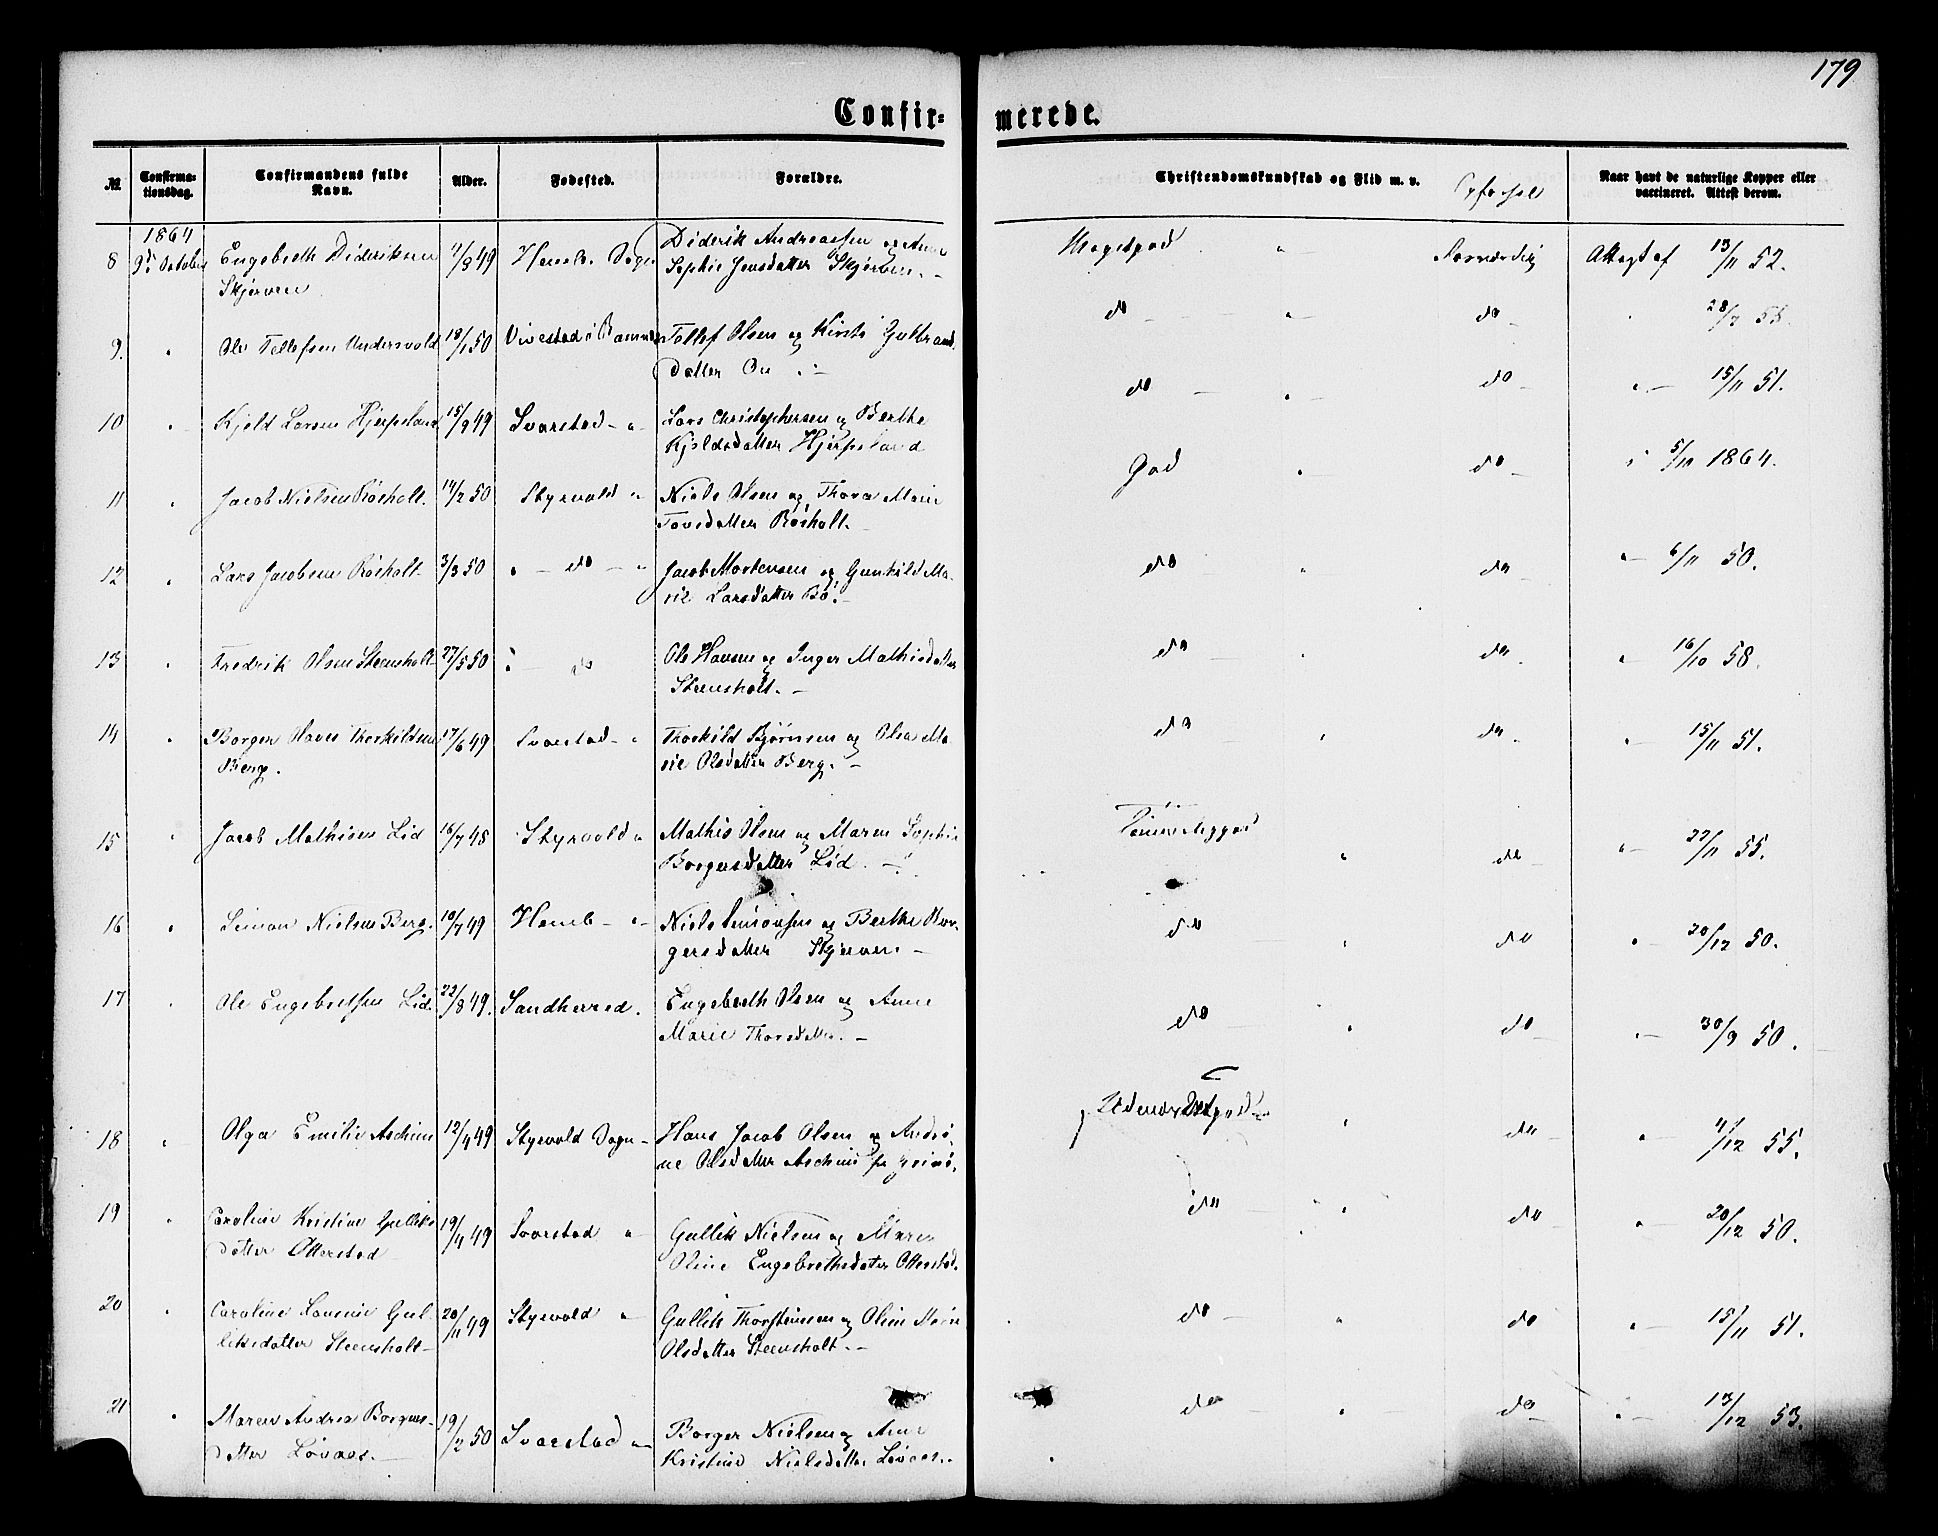 179
Confir= merede.
№ Confirma-tionsdag. Confirmandens fulde Navn. Alder. Fødested. Forældre. Christendomskundskab og Flid m. v. Opførsel Naar havt de naturlige Kopper eller vaccineret. Attest derom.
1864
8 9de October Engebreth Dideriksen 4/8 49 Diderik Andreassen og Anne Meget god " Attest af 13/11 52.
Skjerven Sophie Jensdatter Skjerven. -
9. " Ole Tellefsen Undersvold 18/1 50 Vivestad i Ramnes Tollef Olsen og Kirsti Gulbrands do - " - do - 28/7 55.
Datter
10 " Kjøld Larsen Hjerpeland 15/9 49 Svarstad - " Lars Christophersen og Berthe do - " - do - " - 15/11 51.
Kjøldsdatter Hjerpeland
11 " Jacob Nielsen Røsholt. 14/2 50 Styrvold " Niels Olsen og Thora Marie God " do - 5/10 1864.
Tovsdatter Røsholt. -
12 " Lars Jacobsen Røsholt 3/3 50 " - do - " Jacob Mortensen og Gunhild Ma- do " do - " - 6/11 50.
rie Larsdatter Bø. -
13 " Fredrik Olsen Steensholt 27/5 50 " - do Ole Hansen og Inger Mathisdatter do - " do - " - 16/10 58.
Steensholt. -
14 " Borger Hans Thorkildsen 17/6 49 Svarstad - " Thorkild Bjørnsen og Olea Ma- do - " do - " - 15/11 51.
Berg. rie Olsdatter Berg. -
15 " Jacob Mathisen Lid 16/7 48 Styrvold " Mathis Olsen og Maren Sophie " do - " - 22/11 55.
Borgersdatter Lid. -
16 " Simon Nielsen Berg. 10/7 49 Hemb - " - Niels Simonsen og Berthe Bor- do " do " - 20/12 50.
gersdatter Skjerven. -
17 " Ole Engebretsen Lid. 22/8 49. Sandherred. Engebreth Olsen og Anne do " do - " - 30/9 50.
Marie Thorsdatter. -
18 " Olga Emilie Aschim 12/4 49 Styrvold Sogn - Hans Jacob Olsen og Andri- " do - " - 4/12 55.
ne Olsdatter Aschim
19 " Caroline Kristine Gulliks 19/4 49 Svarstad " Gullik Nielsen og Maren do - " do - " - 20/12 50.
datter Otterstad Oline Engebrethsdatter Otterstad.
20 " Caroline Gul- 20/11 49 Styrvold " Gullik Thorstensen og Oline Marie do - " do " - 15/11 51.
liksdatter Steensholt - Olsdatter Steensholt. -
21 " Maren Andrea Borgers- 19/2 50 Svarstad " Borger Nielsen og Anne do - " do - " - 13/12 53.
datter Løvaas. - Kristine Nielsdatter Løvaas. -